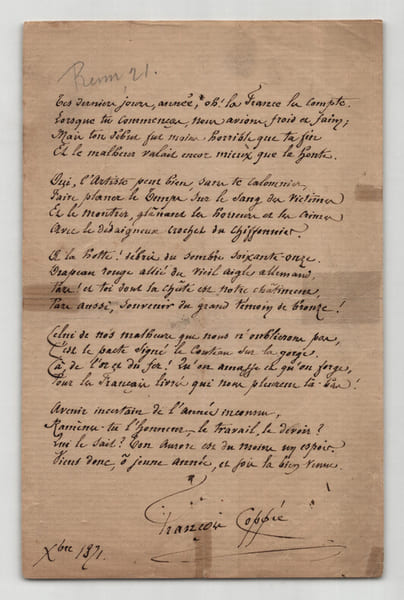 Tes derniers jours, année, oh! la France les compte.
Lorsque tu commenças, nous avions froid et faim;
Mais ton début fut moins horrible que ta fin
Et le malheur valait encor mieux que la honte.
Oui, l'Artiste peut bien, sans te calomnier,
Faire planer le Temps sur le Sang des victimes
Et le montrer, glanant les horreurs et les crimes
Avec le dédaigneux crochet du chiffonnier.
A la hotte! débris du sombre soixante-onze.
Drapeau rouge allié du vieil aigle allemand,
Pars! et toi dont la chûte est notre châtiment,
Pars aussi, souvenir du grand témoin de bronze!
Celui de nos malheurs que nous n'oublierons pas,
C'est le pacte signé le couteau sur la gorge.
Çà de l'or, çà du fer! Qu'on amasse et qu'on forge,
Pour les Français livrés qui nous pleurent là-bas!
Avenir incertain de l'année inconnue,
Ramènes-tu l'honneur, le travail, le devoir?
Qui le sait? Ton aurore est du moins un espoir.
Viens donc, ô jeune année, et sois la bien venue.
François Coppée
Xbre 1871.